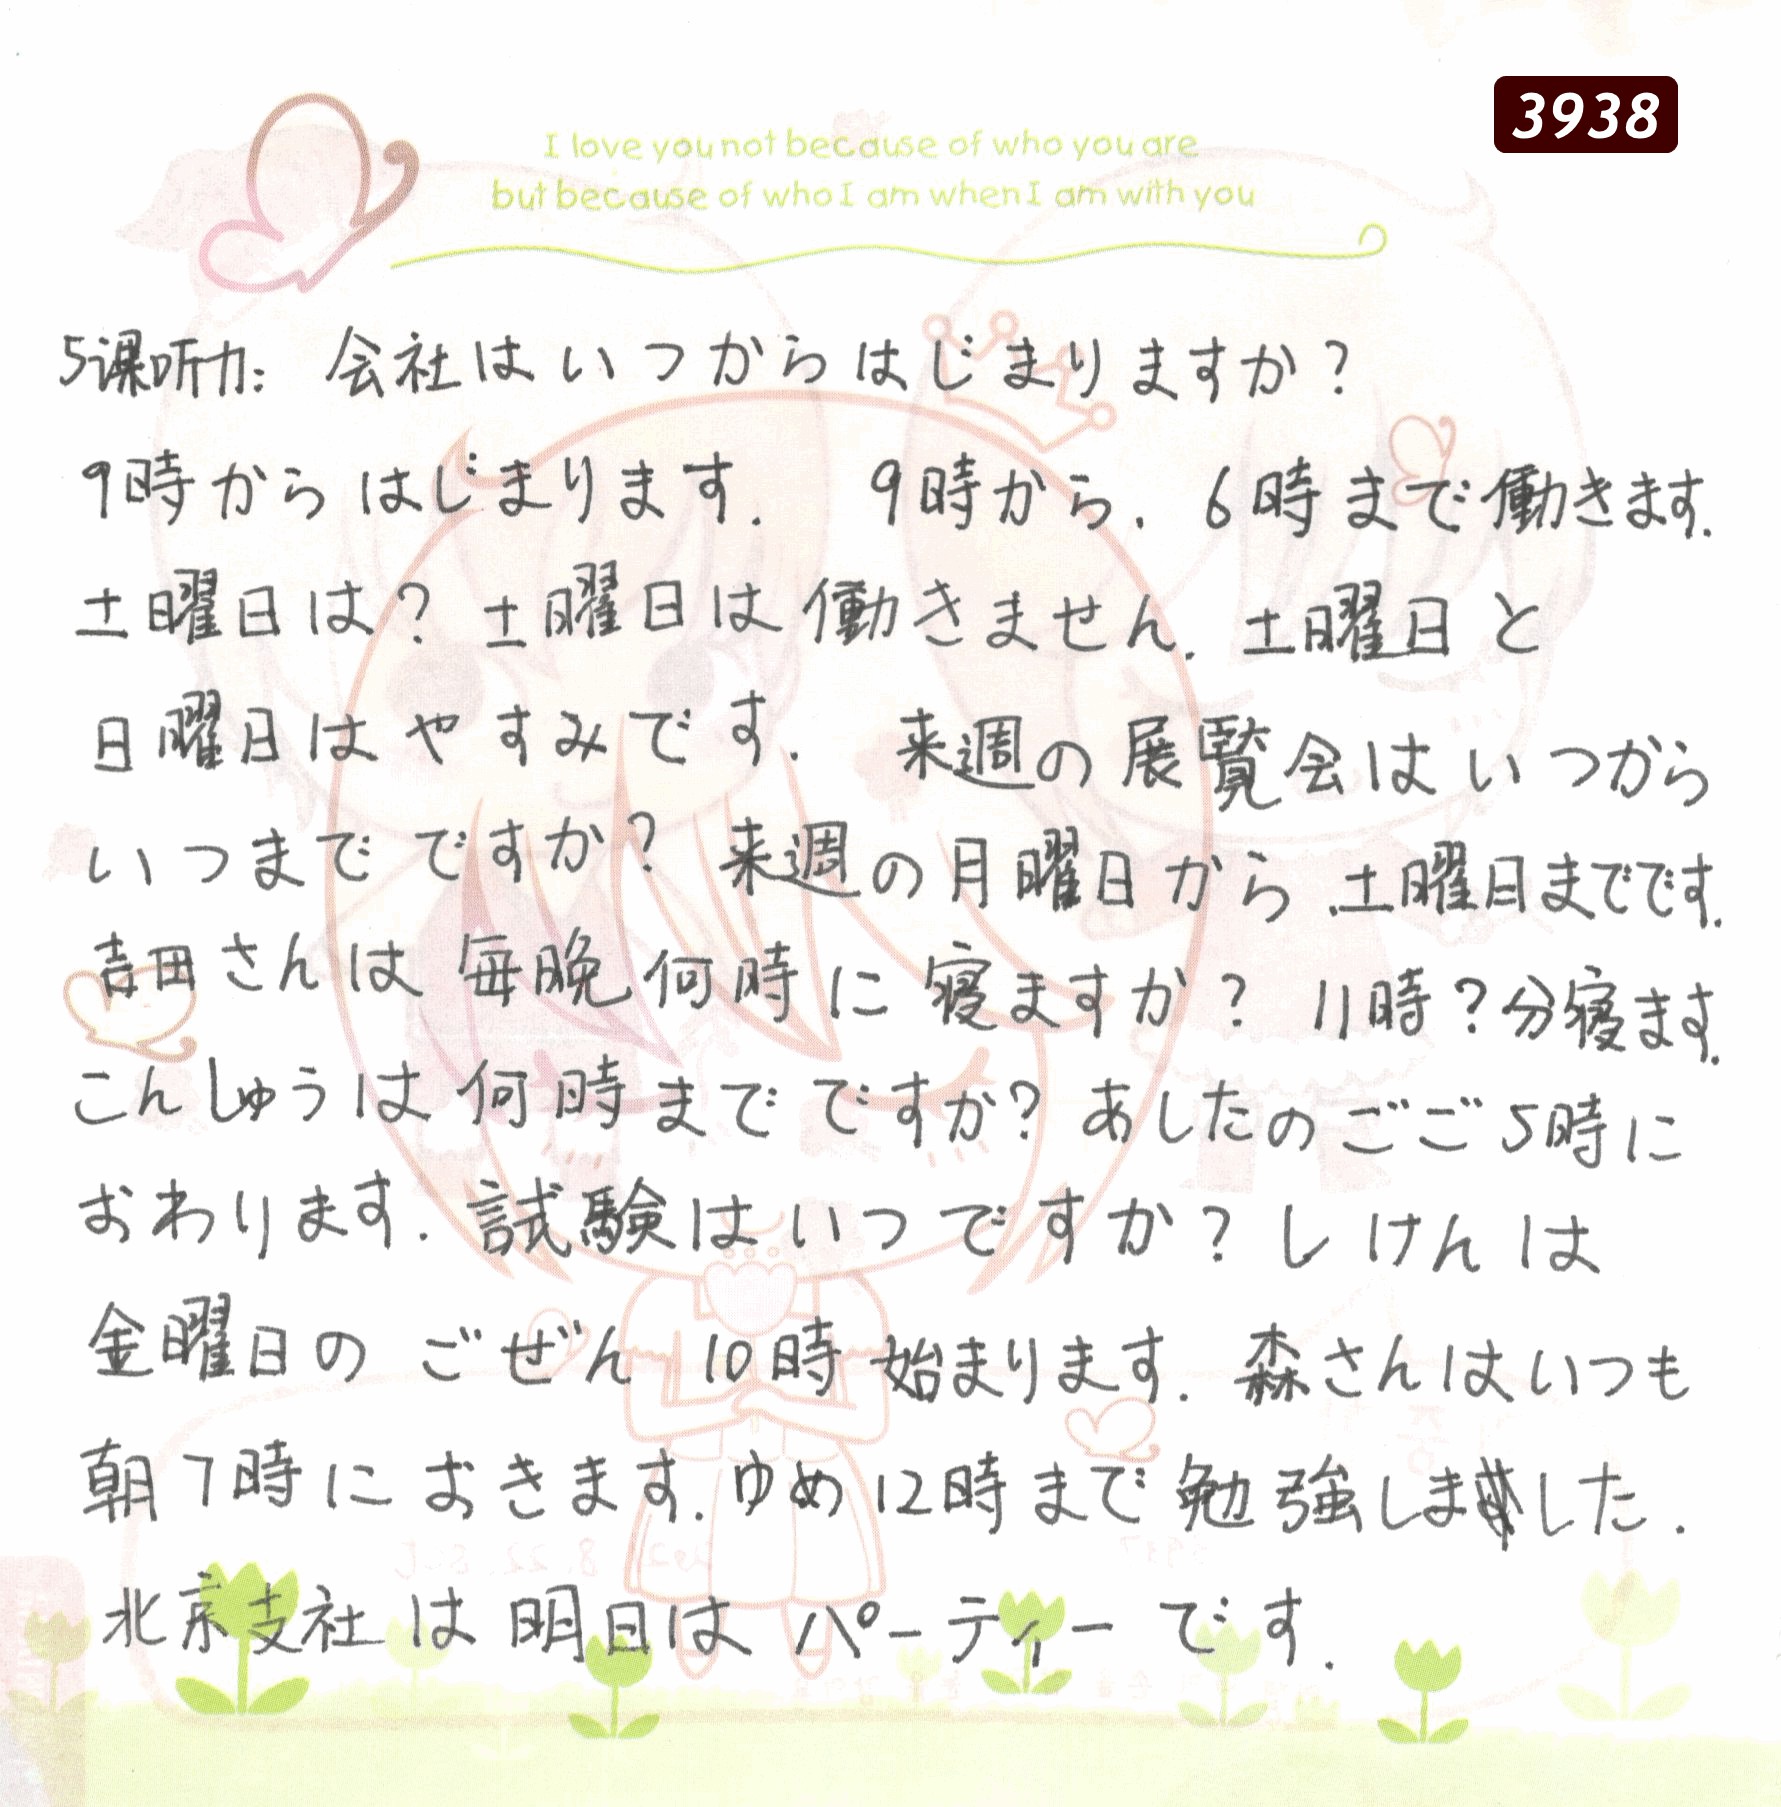 3938
I love you not because of who you are
but because of who I am when I am with you
5课听力: 会社はいつからはじまりますか?
9時からはじまります. 9時から. 6時まで働きます.
土曜日は? 土曜日は働きません. 土曜日と
日曜日はやすみです. 来週の展覧会はいつから
いつまでですか? 来週の月曜日から.土曜日までです.
吉田さんは毎晩何時に寝ますか? 11時?分寝ます.
こんしゅうは何時までですか? あしたのごご5時に
おわります. 試験はいつですか? しけんは
金曜日のごぜん10時始まります. 森さんはいつも
朝7時におきます. ゆめ12時まで勉強しました.
北京支社は明日はパーティーです.